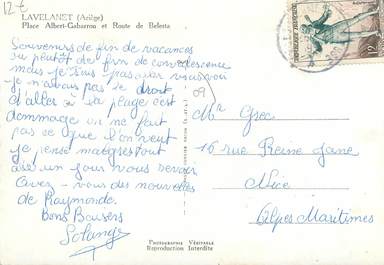 12 €
LAVELANET (Ariège)
Place Albert-Gabarrou et Route de Belesta
Souvenirs de fin de vacances
ou plutôt de fin de convalescence
mais je suis pas voir
je n'avais pas le droit
d'aller à la plage c'est
dommage on ne fait
pas ce que l'on veut
je pense malgrès tout
un jour vous
Avez-vous des nouvelles
de Raymonde.
Bons Baisers
Solange
09
Mr Grec
16 rue Reine Jane
Nice
Alpes Maritimes
PHOTOGRAPHIE VÉRITABLE
Reproduction Interdite
12